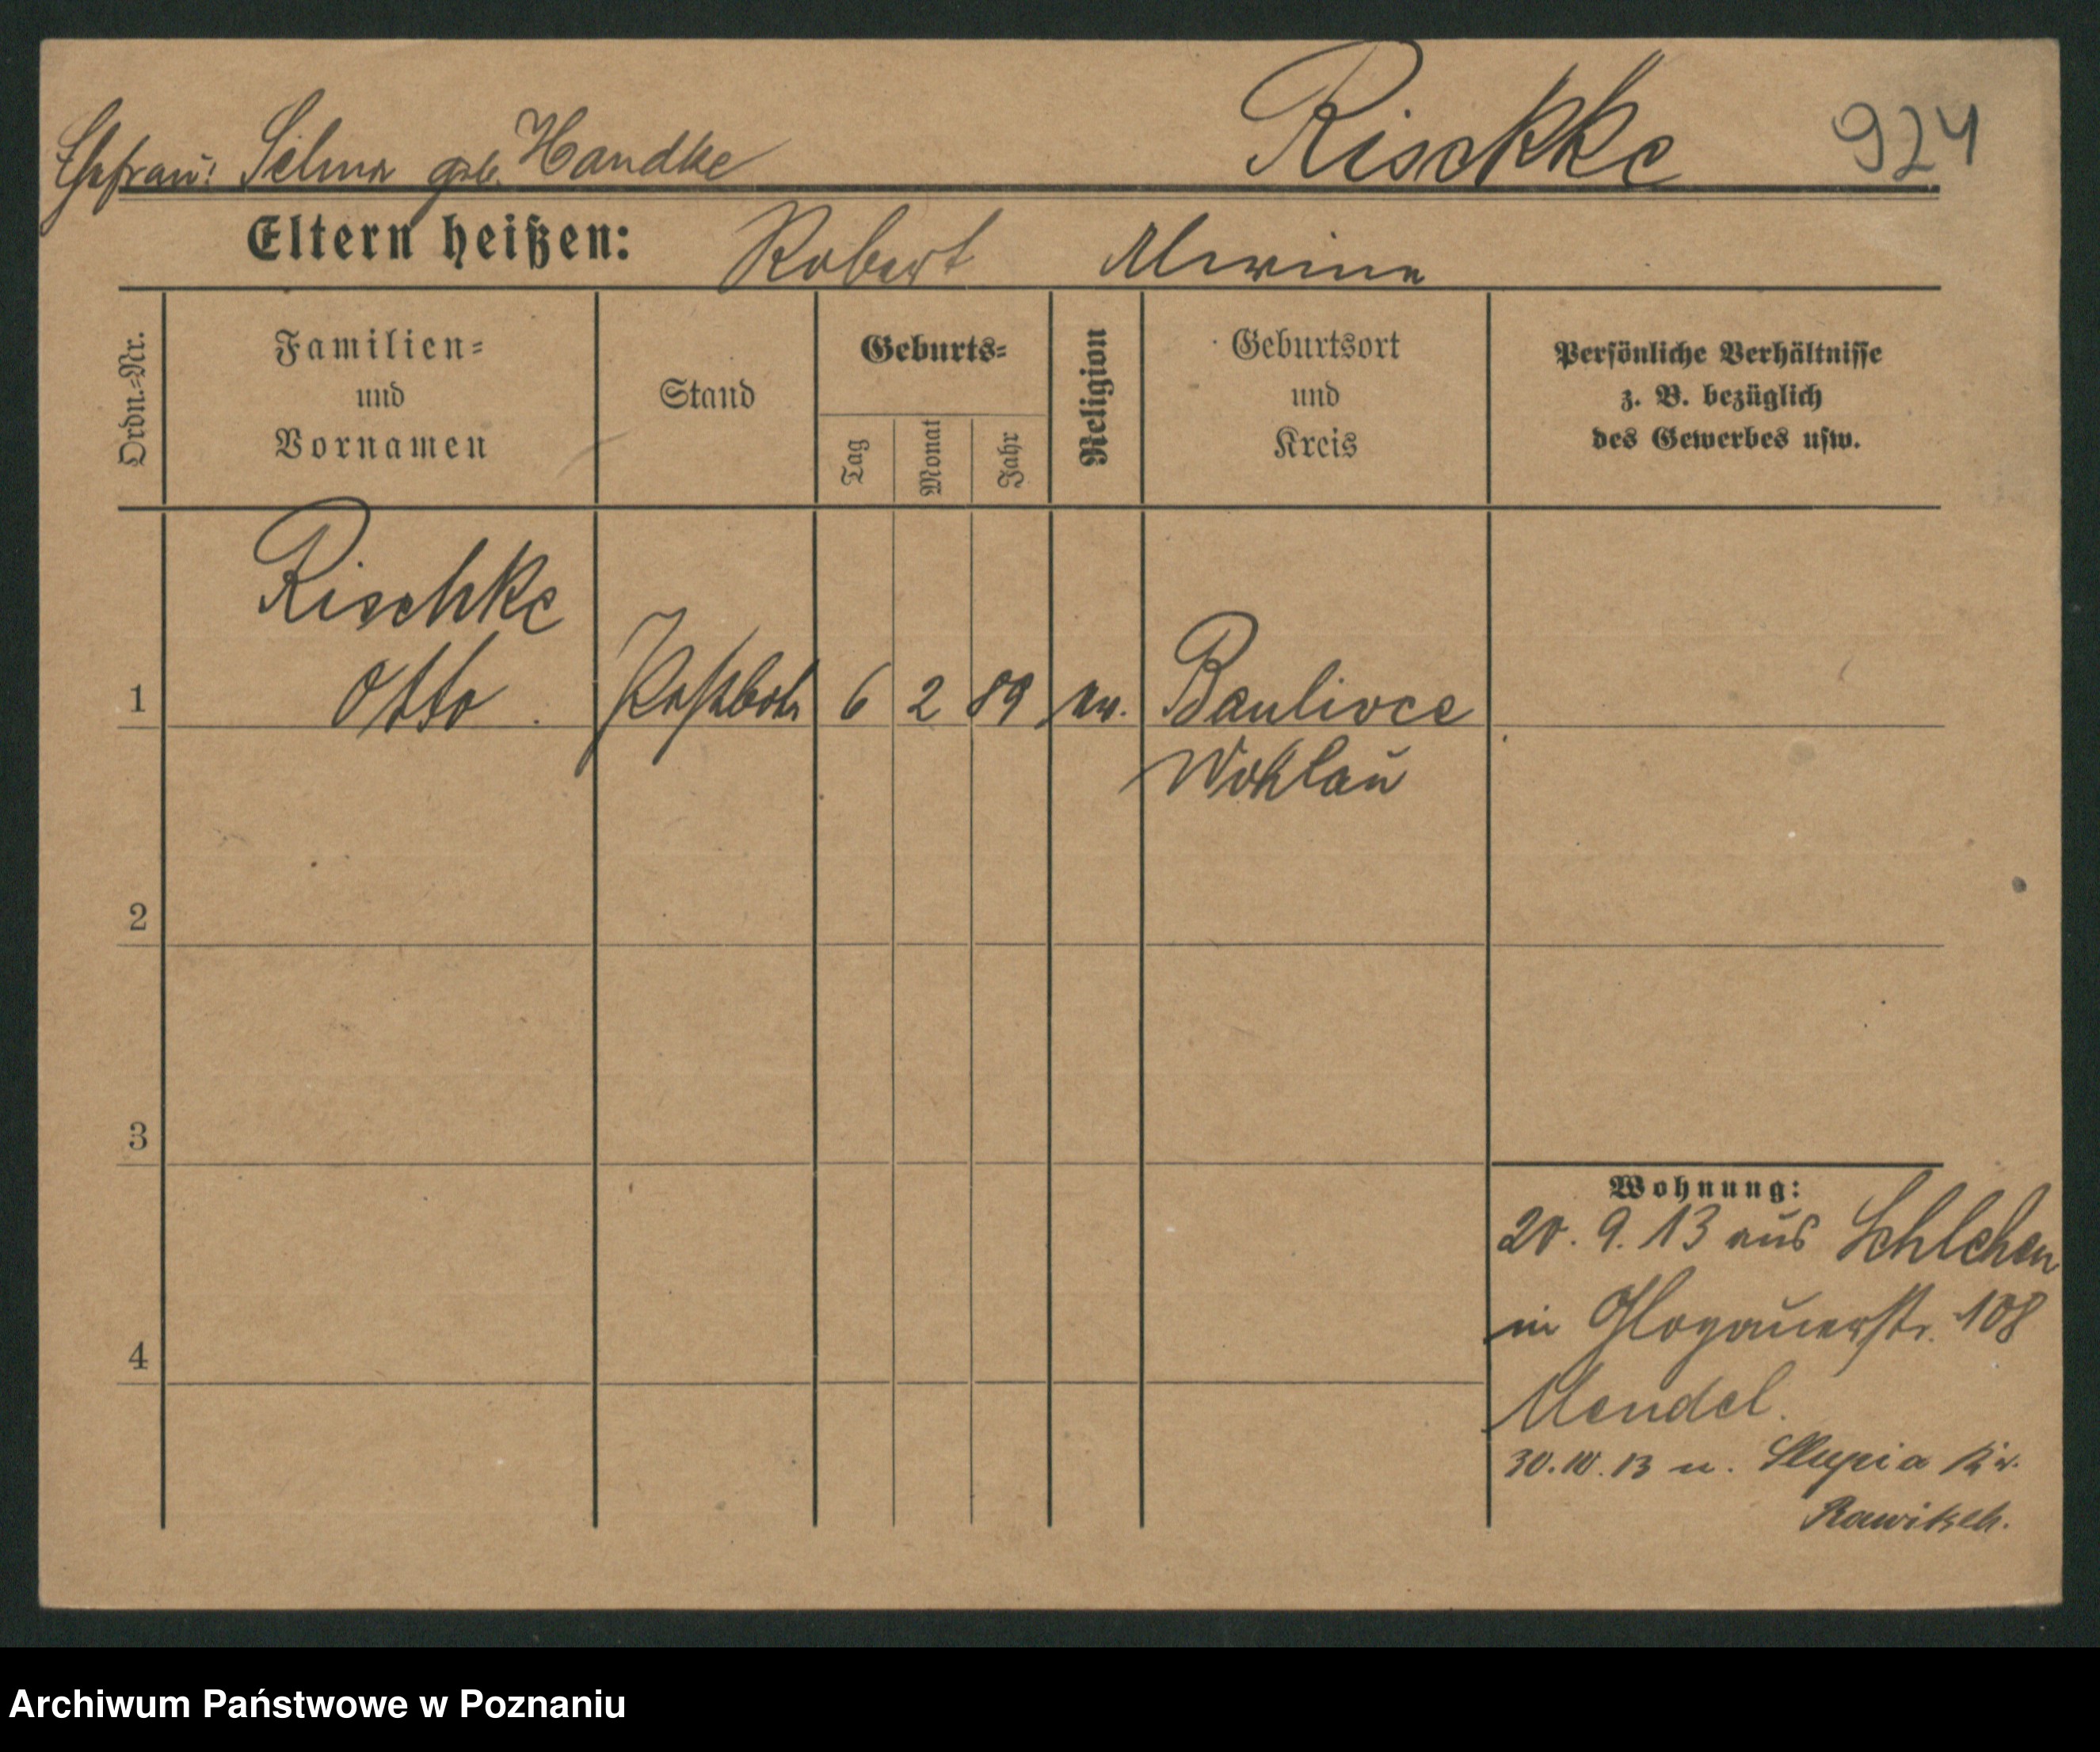 Rischke 924
Ehefrau: Selma geb. Handke
Eltern heißen: Robert Alwine
Ordn.-Nr.
Familien-
und
Vornamen
Stand
Geburts-
Tag
Monat
Jahr
Religion
Geburtsort
und
Kreis
Persönliche Verhältnisse
z. B. bezüglich
des Gewerbes usw.
Rischke
1 Otto Postbote 6 2 89 ev.
Wohlau
2
3
4
Wohnung:
20. 9. 13 aus
in Glogauerstr. 108
Mendel.
30. III. 13 n. Slupia Kr.
Rawitsch.
Archiwum Państwowe w Poznaniu